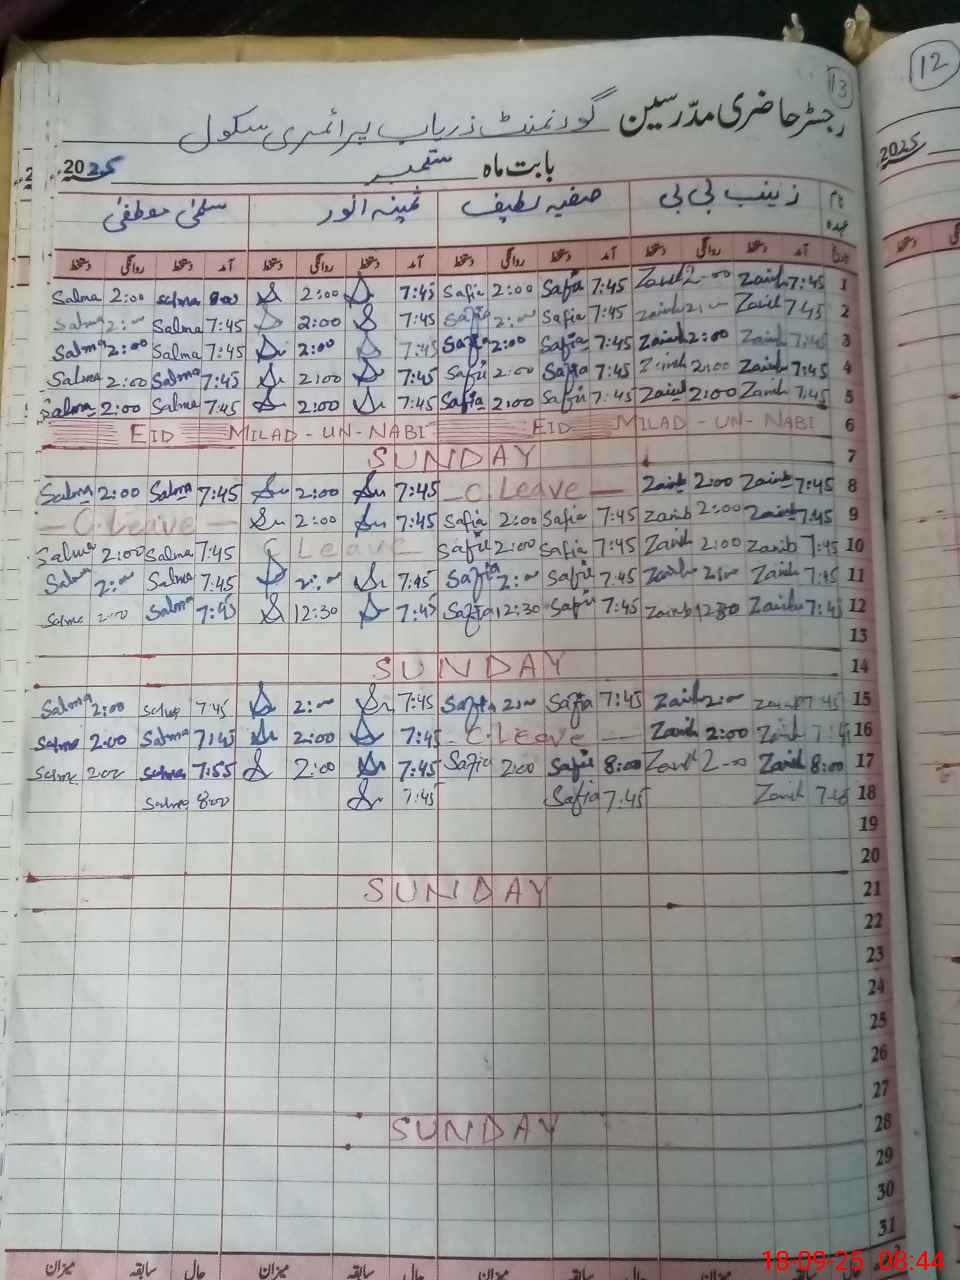 13
12
رجسٹر حاضری مدرسین گورنمنٹ زرباب پرائمری سکول
بابت ماہ ستمبر 2025
2025
نام عہدہ زینب بی بی صفیہ لطیف ثمینہ انور سلمیٰ مصطفیٰ
آمد دستخط روانگی دستخط آمد دستخط روانگی دستخط آمد دستخط روانگی دستخط آمد دستخط روانگی دستخط
Salma 2:00 Salma 2:00 7:45 Safia 2:00 Safia 7:45 Zainb 2-00 Zainb 7:45 1
Salma 2:00 Salma 7:45 2:00 7:45 Safia 2:00 Safia 7:45 Zainb 2:00 Zainb 7:45 2
Salma 2:00 Salma 7:45 2:00 7:45 Safia 2:00 Safia 7:45 Zainb 2:00 Zainb 7:45 3
Salma 2:00 Salma 7:45 2:00 7:45 Safia 2:00 Safia 7:45 Zainb 2:00 Zainb 7:45 4
Salma 2:00 Salma 7:45 2:00 7:45 Safia 2:00 Safia 7:45 Zainb 2:00 Zainb 7:45 5
EID MILAD-UN-NABI EID MILAD-UN-NABI 6
SUNDAY 7
Salma 2:00 Salma 7:45 2:00 7:45 -C.Leave- Zainb 2:00 Zainb 7:45 8
-C.Leave- 2:00 7:45 Safia 2:00 Safia 7:45 Zainb 2:00 Zainb 7:45 9
Salma 2:00 Salma 7:45 C Leave Safia 2:00 Safia 7:45 Zainb 2:00 Zainb 7:45 10
Salma 2:00 Salma 7:45 2:00 7:45 Safia 2:00 Safia 7:45 Zainb 2:00 Zainb 7:45 11
Salma 2:00 Salma 7:45 12:30 7:45 Safia 12:30 Safia 7:45 Zainb 12:30 Zainb 7:45 12
13
SUNDAY 14
Salma 2:00 Salma 7:45 2:00 7:45 Safia 2:00 Safia 7:45 Zainb 2:00 Zainb 7:45 15
Salma 2:00 Salma 7:45 2:00 7:45 -C.Leave- Zainb 2:00 Zainb 7:45 16
Salma 2:00 Salma 7:55 2:00 7:45 Safia 2:00 Safia 8:00 Zainb 2-00 Zainb 8:00 17
Salma 8:00 7:45 Safia 7:45 Zainb 7:45 18
19
20
SUNDAY 21
22
23
24
25
26
27
SUNDAY 28
29
30
31
حال سابقہ میزان حال سابقہ میزان حال سابقہ میزان
18-09-25 08:44